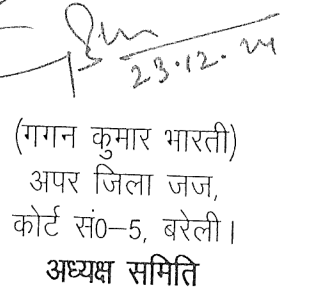 23.12.24
(गगन कुमार भारती)
अपर जिला जज,
कोर्ट सं0–5, बरेली।
अध्यक्ष समिति